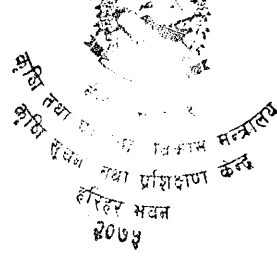 कृषि तथा विकास मन्त्रालय
कृषि सूचना तथा प्रशिक्षण केन्द्र
हरिहर भवन
२०७५